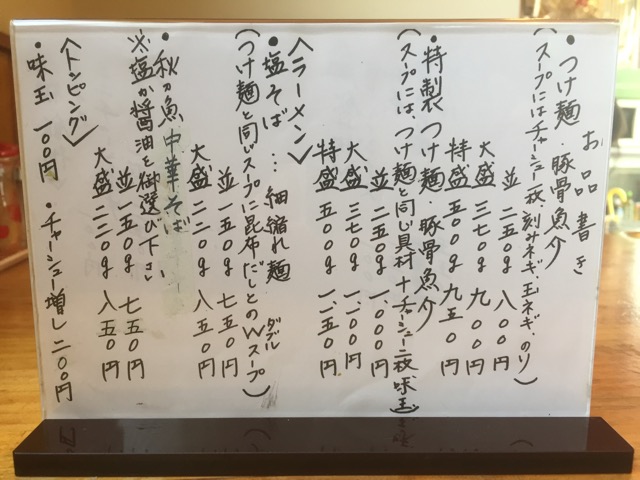 お品書き
・つけ麺・豚骨魚介
(スープにはチャーシュー一枚、刻みネギ、玉ネギ、のり)
並 二五〇g 八〇〇円
大盛 三七〇g 九〇〇円
特盛 五〇〇g 九五〇円
・特製つけ麺・豚骨魚介
(スープには、つけ麺と同じ具材+チャーシュー二枚、味玉)
並 二五〇g 一、〇〇〇円
大盛 三七〇g 一、一〇〇円
特盛 五〇〇g 一、一五〇円
〈ラーメン〉
・塩そば…細縮れ麺
(つけ麺と同じスープに昆布だしとのWスープ)
ダブル
並 一五〇g 七五〇円
大盛 二二〇g 八五〇円
・秋刀魚中華そば
※塩か醤油を御選び下さい
並 一五〇g 七五〇円
大盛 二二〇g 八五〇円
〈トッピング〉
・味玉 一〇〇円 ・チャーシュー増し 二〇〇円